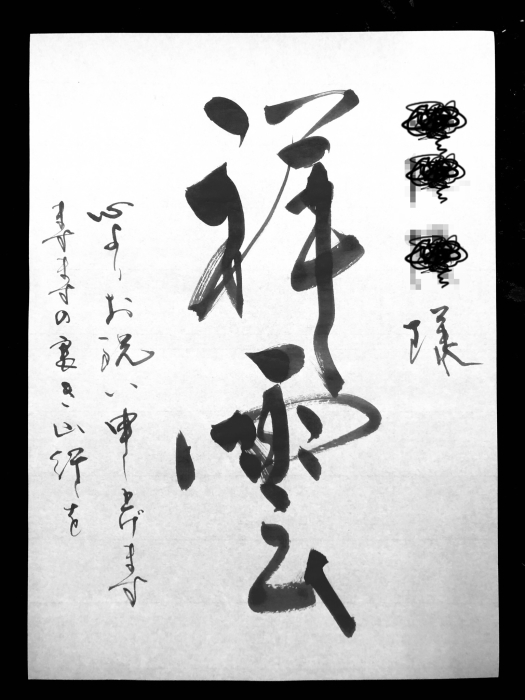 様
祥雲
心よりお祝い申し上げます
ますますの き山行を